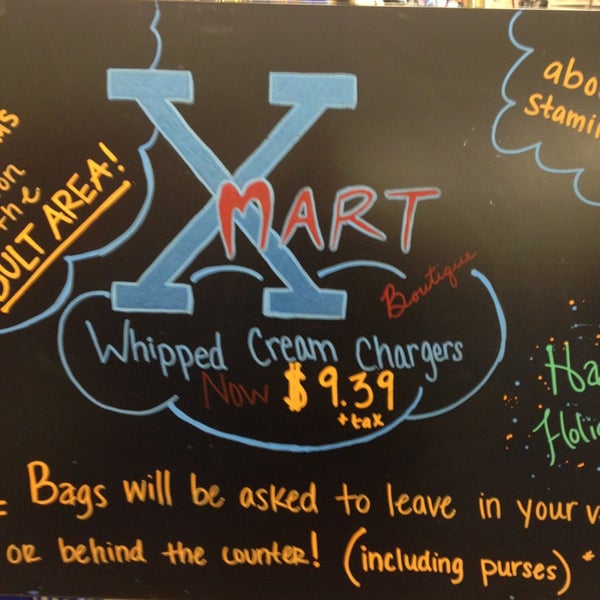 on
the
ADULT AREA!
X MART
Boutique
Whipped Cream Chargers
Now $9.39
+ tax
Bags will be asked to leave in your
or behind the counter! (including purses) *